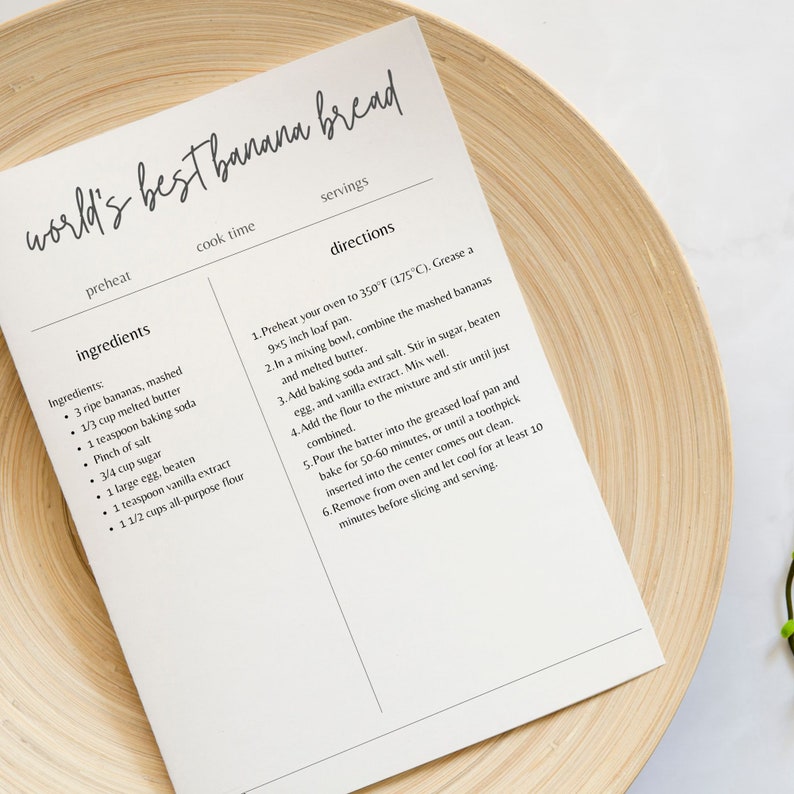 world's best banana bread
preheat
cook time
servings
ingredients
Ingredients:
• 3 ripe bananas, mashed
• 1/3 cup melted butter
• 1 teaspoon baking soda
• Pinch of salt
• 3/4 cup sugar
• 1 large egg, beaten
• 1 teaspoon vanilla extract
• 1 1/2 cups all-purpose flour
directions
1. Preheat your oven to 350°F (175°C). Grease a
9×5 inch loaf pan.
2. In a mixing bowl, combine the mashed bananas
and melted butter.
3. Add baking soda and salt. Stir in sugar, beaten
egg, and vanilla extract. Mix well.
4. Add the flour to the mixture and stir until just
combined.
5. Pour the batter into the greased loaf pan and
bake for 50-60 minutes, or until a toothpick
inserted into the center comes out clean.
6. Remove from oven and let cool for at least 10
minutes before slicing and serving.